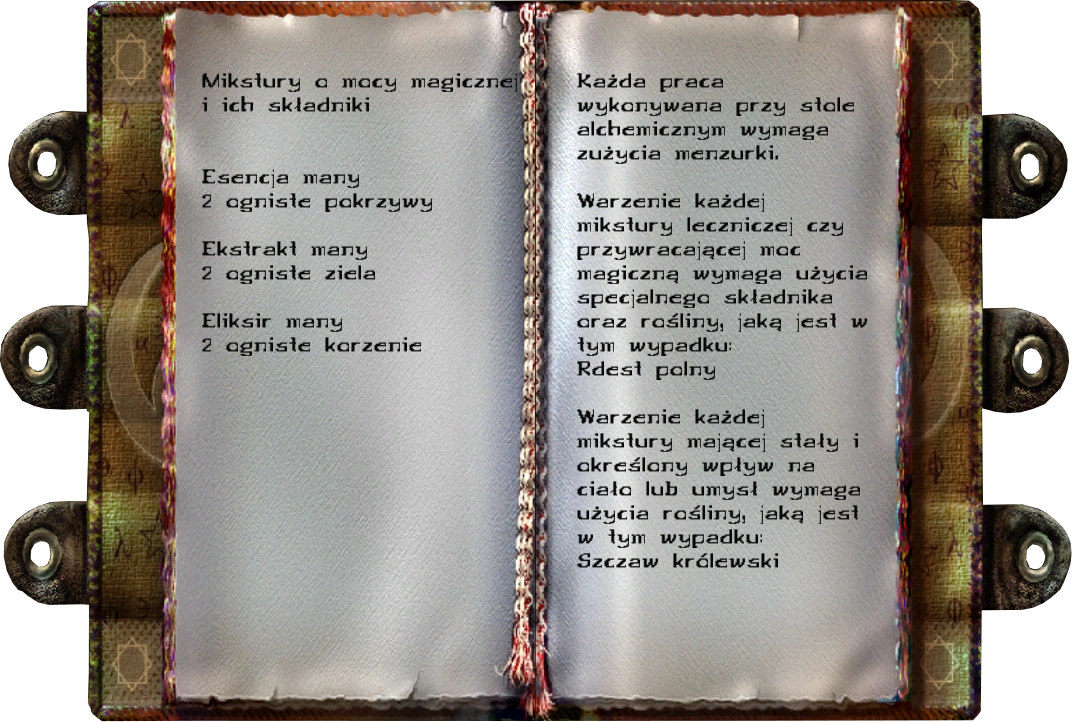 Mikstury o mocy magicznej
i ich składniki
Esencja many
2 ogniste pokrzywy
Ekstrakt many
2 ogniste ziela
Eliksir many
2 ogniste korzenie
Każda praca
wykonywana przy stole
alchemicznym wymaga
zużycia menzurki.
Warzenie każdej
mikstury leczniczej czy
przywracającej moc
magiczną wymaga użycia
specjalnego składnika
oraz rośliny, jaką jest w
tym wypadku:
Rdest polny
Warzenie każdej
mikstury mającej stały i
określony wpływ na
ciało lub umysł wymaga
użycia rośliny, jaką jest
w tym wypadku:
Szczaw królewski